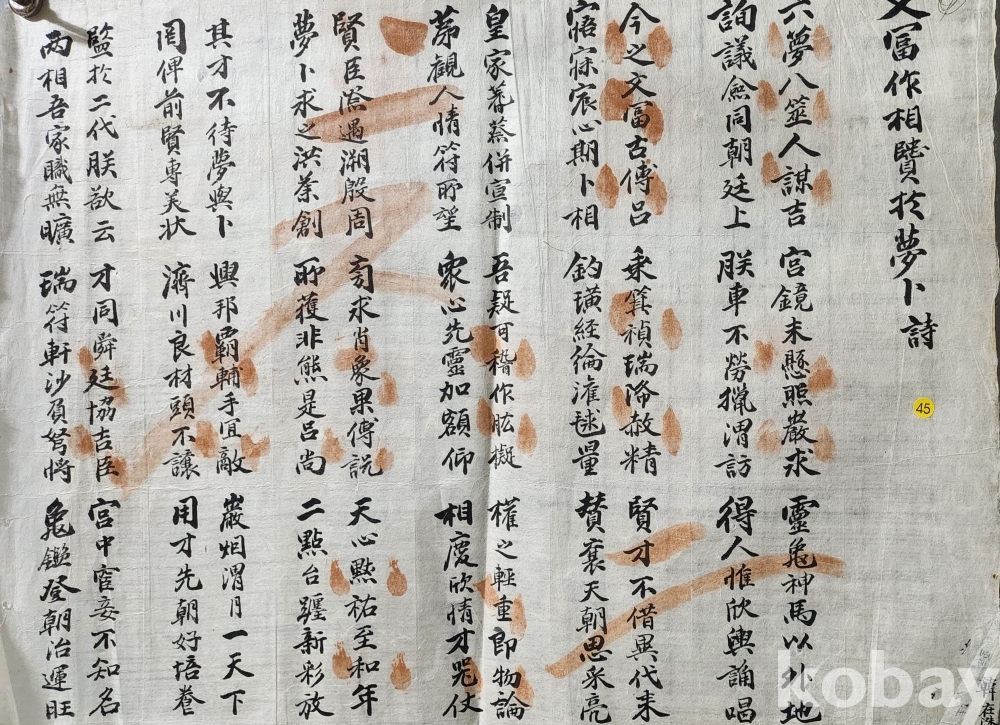 文冨作相贒於夢卜詩
六夢八筮人謀吉 宮鏡未懸照巖求 靈龜神馬以外地
詢議僉同朝廷上 朕車不勞獵渭訪 得人惟欣輿誦唱
今之文冨古傅呂 乗箕禎瑞降精 賢才不借異代来
寤寐宸心期卜相 釣璜経綸量 賛襄天朝思采亮
皇家蓍蔡併宣制 吾疑可稽作肱擬 權之輕重即物論
第觀人情符所望 衆心先靈加額仰 相慶欣情才仗
賢臣際遇溯殷周 旁求肖象果傅説 天心默祐至和年
夢卜求之洪業創 所獲非熊是呂尚 二點台躔新彩放
其才不待夢與卜 興邦覇輔手宜敵 巖烟渭月一天下
罔俾前賢專美状 濟川良材頭不讓 用才先朝好培養
監於二代朕欲云 才同舜廷協吉臣 宮中宦妾不知名
両相吾家職無曠 瑞符軒沙負弩将 龜鑑登朝治運旺
45
kobay